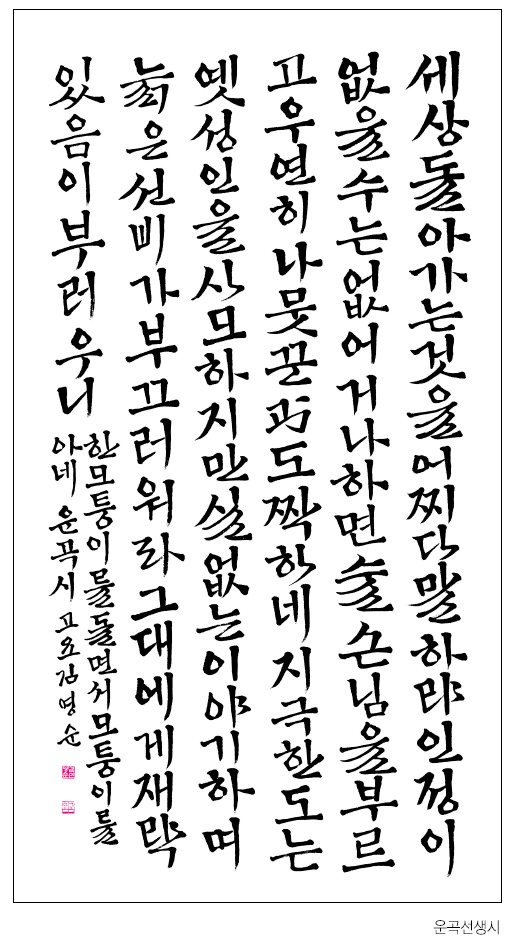 세상돌아가는것을어찌다말하랴인정이
없을수는없어거나하면술손님을부르
고우연히나뭇꾼과도짝하네지극한도는
옛성인을사모하지만실없는이야기하며
늙은선비가부끄러워라그대에게재략
있음이부러우니
한모퉁이를돌면서모퉁이를
아네 운곡시 고요김영순
운곡선생시